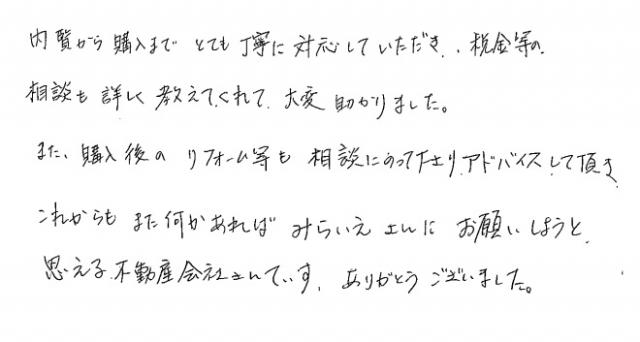 内覧から購入まで とても丁寧に対応していただき、税金等の
相談も詳しく教えてくれて、大変助かりました。
また、購入後のリフォーム等も相談にのって下さり、アドバイスして頂き
これからもまた何かあれば みらいえさんに お願いしようと、
思える不動産会社さんです。ありがとうございました。